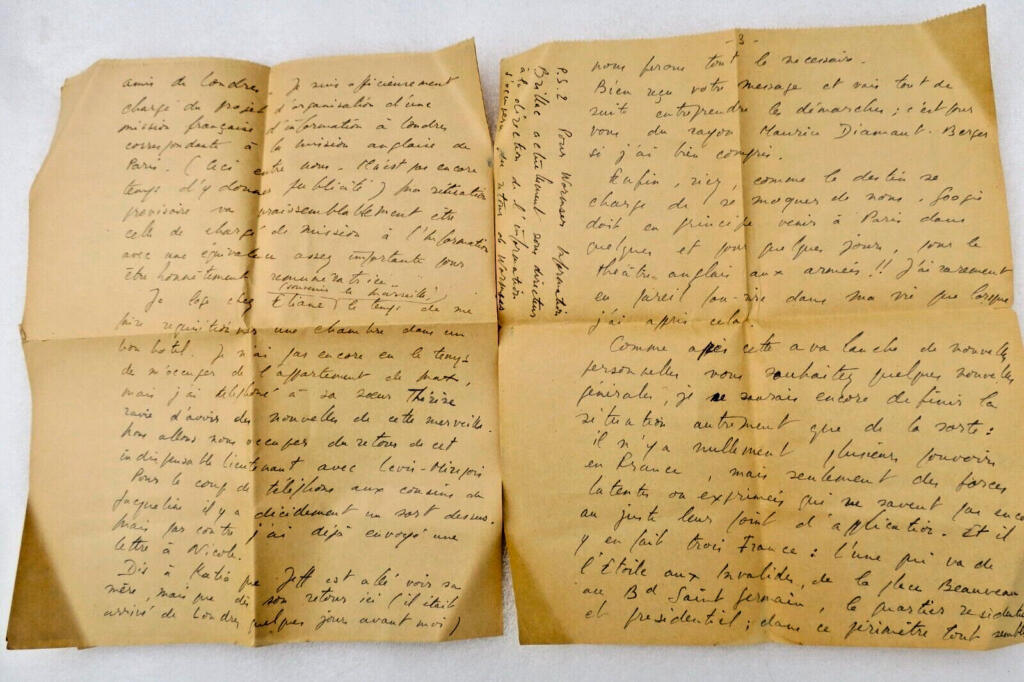 amis de Londres. Je suis officieusement
chargé du projet d'organisation d'une
mission française d'information à Londres
correspondante à la mission anglaise de
Paris. (Ceci entre nous. Il n'est pas encore
temps d'y donner publicité) Ma situation
provisoire va vraisemblablement être
celle de chargé de mission à l'Information
avec une équivalence assez importante pour
être honnêtement rémunératrice.
(souvenir de Marseille!)
Je loge chez Eliane, le temps de me
faire réquisitionner une chambre dans un
bon hôtel. Je n'ai pas encore eu le temps
de m'occuper de l'appartement de Max,
mais j'ai téléphoné à sa sœur Thérèse
ravie d'avoir des nouvelles de cette merveille.
Nous allons nous occuper du retour de cet
indispensable lieutenant avec Levis-Mirepoix
Pour le coup de téléphone aux cousins de
Jacqueline il y a décidément un sort dessus.
Mais par contre j'ai déjà envoyé une
lettre à Nicole.
Dis à Katia que Jeff est allé voir sa
mère, mais que dès son retour ici (il était
arrivé de Londres quelques jours avant moi)
P.S. 2 Pour Wormser
Brillac actuellement sous directeur
à la direction de l'information
s'occupera du retour de Wormser
- 3 -
nous ferons tout le nécessaire.
Bien reçu votre message et vais tout de
suite entreprendre les démarches; c'est par
vous du rayon Maurice Diamant-Berger
si j'ai bien compris.
Enfin, riez, comme le destin se
charge de se moquer de nous. Googie
doit en principe venir à Paris dans
quelques et pour quelques jours, pour le
théâtre anglais aux armées!! J'ai rarement
eu pareil fou-rire dans ma vie que lorsque
j'ai appris cela.
Comme après cette avalanche de nouvelles
personnelles vous souhaitez quelques nouvelles
générales, je ne saurais encore définir la
situation autrement que de la sorte:
il n'y a nullement plusieurs pouvoirs
en France, mais seulement des forces
latentes ou exprimées qui ne savent pas encore
au juste leur point d'application. Et il
y en fait trois France: l'une qui va de
l'Etoile aux Invalides, de la place Beauveau
au Bd Saint Germain, le quartier résidentiel
et présidentiel; dans ce périmètre tout semble